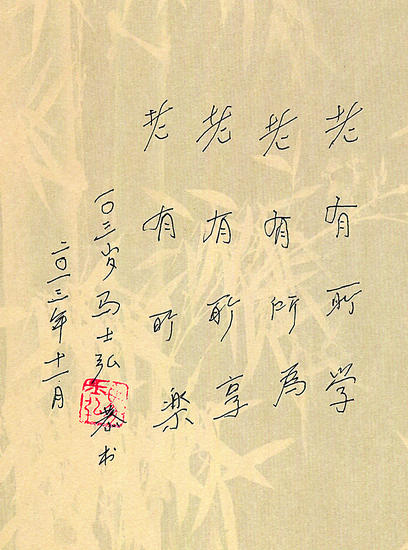 老有所学
老有所为
老有所享
老有所楽
一〇三岁马士弘恭书
二〇一三年十一月